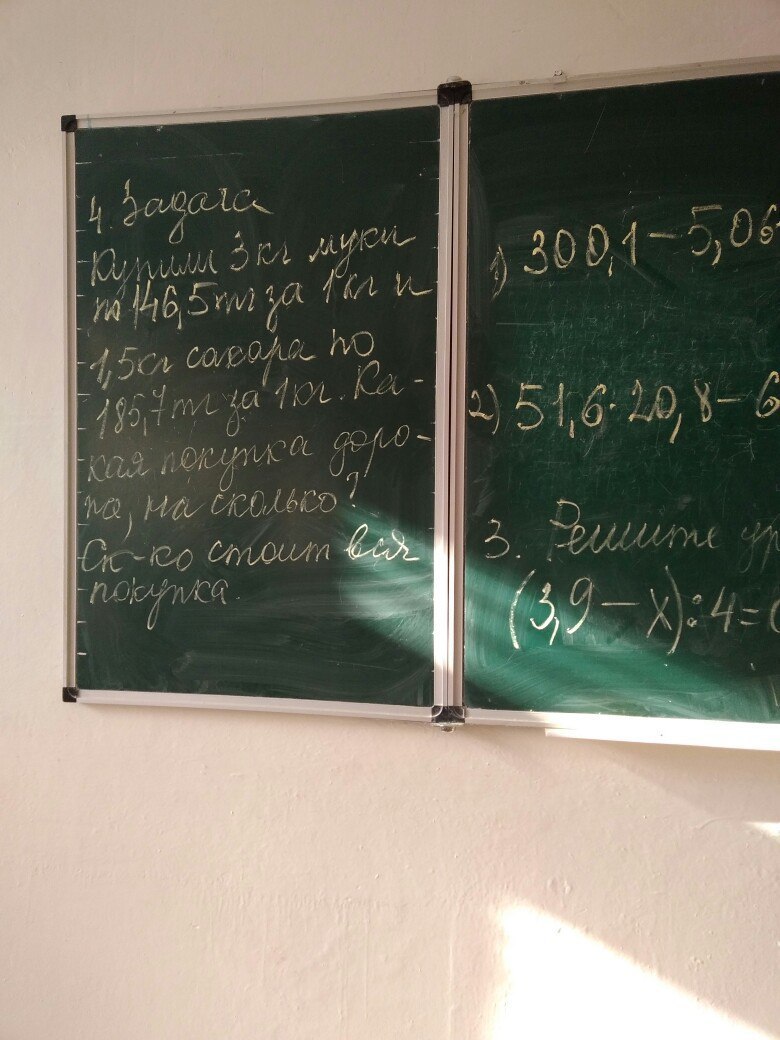 4. Задача
Купили 3кг муки
по 146,5тг за 1кг и
1,5кг сахара по
185,7тг за 1кг. Ка-
кая покупка доро-
га, на сколько?
Ск-ко стоит вся
покупка.
1) 300,1-5,06
2) 51,6·20,8-6
3. Решите ур
(3,9-х):4=0